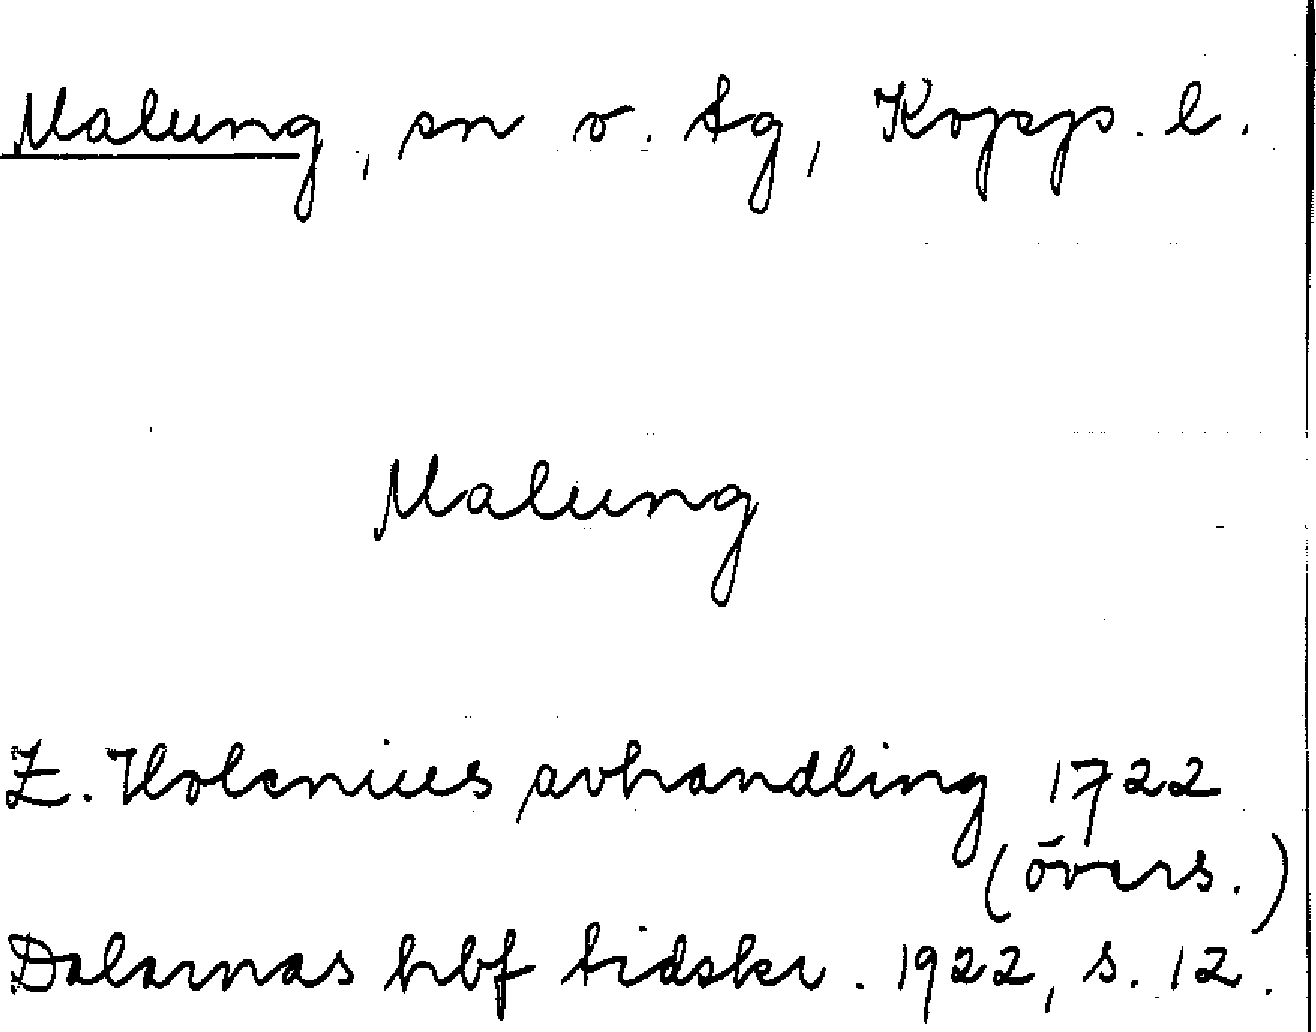 Malung, sn o. tg, Kopp. l.
Malung
Z. Holenius avhandling 1722
(övers.)
Dalarnas hbf tidskr. 1922, s. 12.